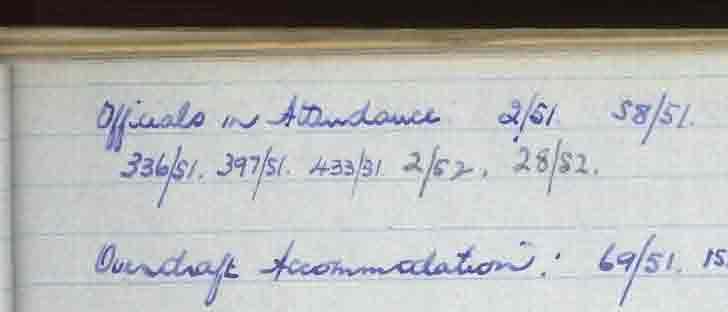 Officials in Attendance. 2/51. 58/51.
336/51. 397/51. 433/31 2/52. 28/52.
Overdraft Accommodation: 69/51. 15